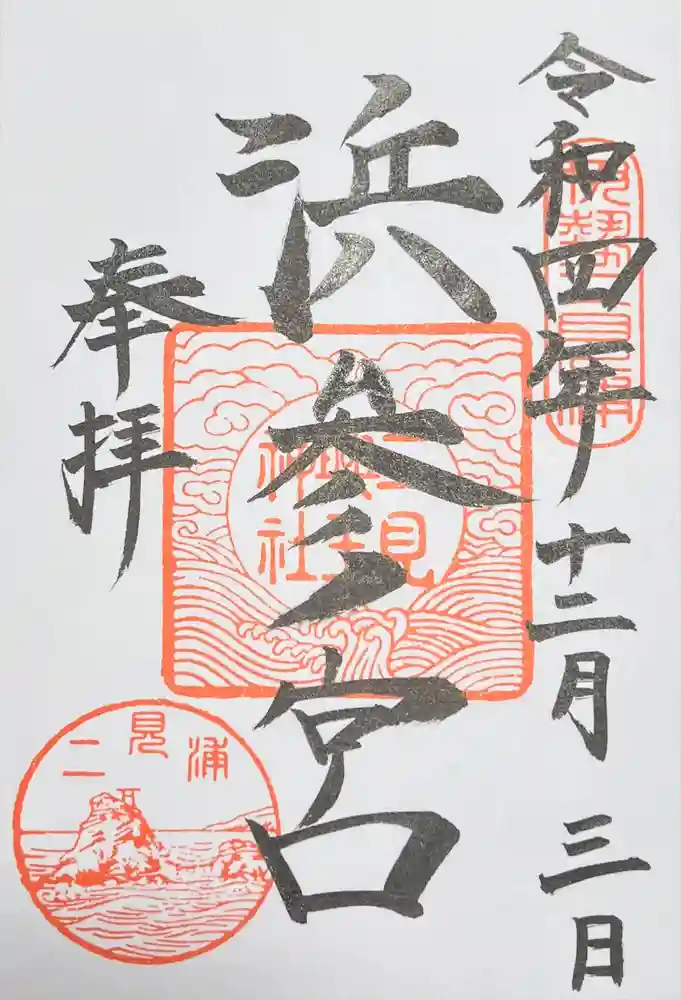 令和四年十二月三日
伊勢二見浦
浜参宮
二見
興玉
神社
奉拝
二見浦